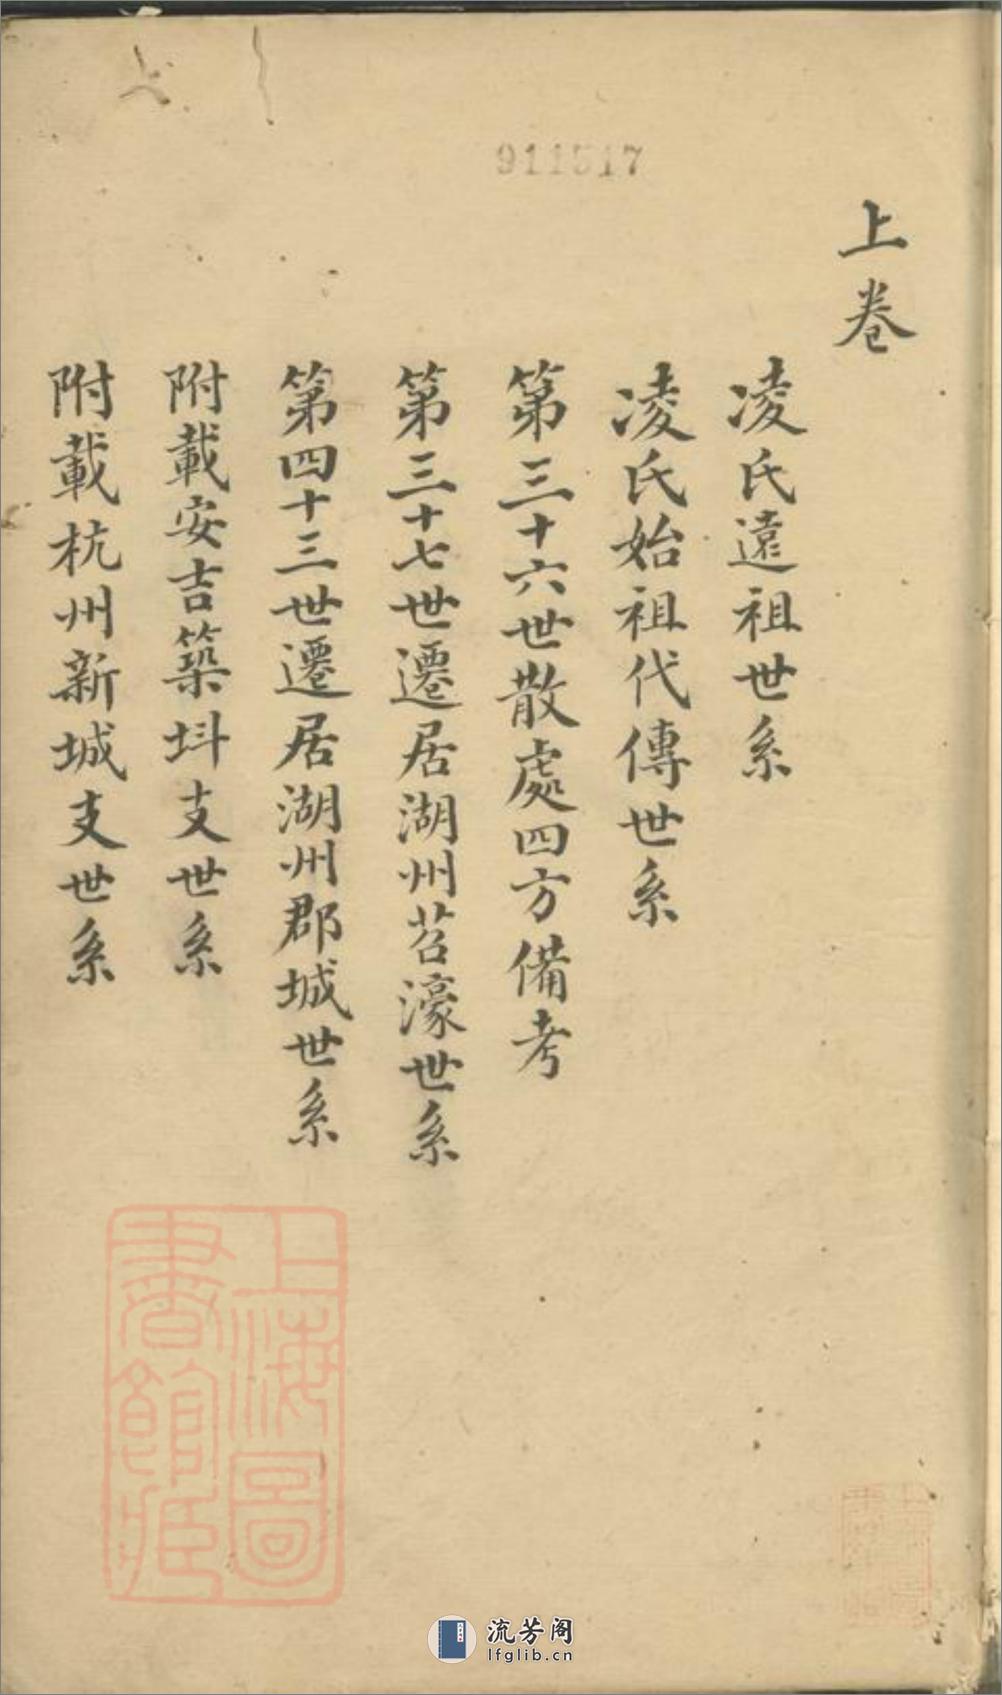 911517
上卷
凌氏遠祖世系
凌氏始祖代傳世系
第三十六世散處四方備考
第三十七世遷居湖州苕濠世系
第四十三世遷居湖州郡城世系
附載安吉築㘰支世系
附載杭州新城支世系
上海圖
書館藏
流芳阁
lfglib.cn